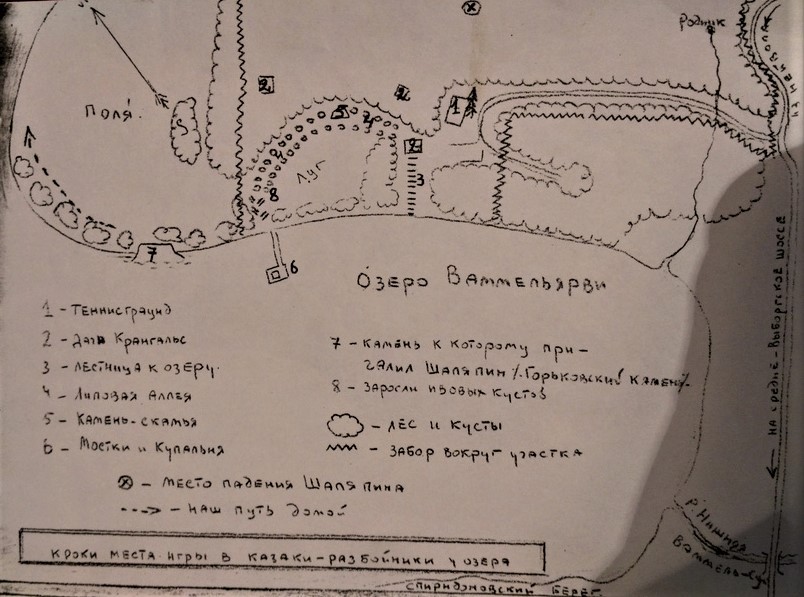 Родник
2
2
1
Поля.
5
4
2
Луг
8
3
7
6
Озеро Ваммельярви
1 – Теннисграунд
2 – Дача Крангальс
3 – Лестница к озеру.
4 – Липовая Аллея
5 – Камень-скамья
6 – Мостки и Купальня
7 – Камень к которому при-
чалил Шаляпин /. Горьковский камень/.
8 – Заросли ивовых кустов
– лес и кусты
– забор вокруг участка
– место падения Шаляпина
– наш путь домой
на средне-выборгское шоссе
Кроки места игры в казаки-разбойники у озера
Спиридоновский берег.